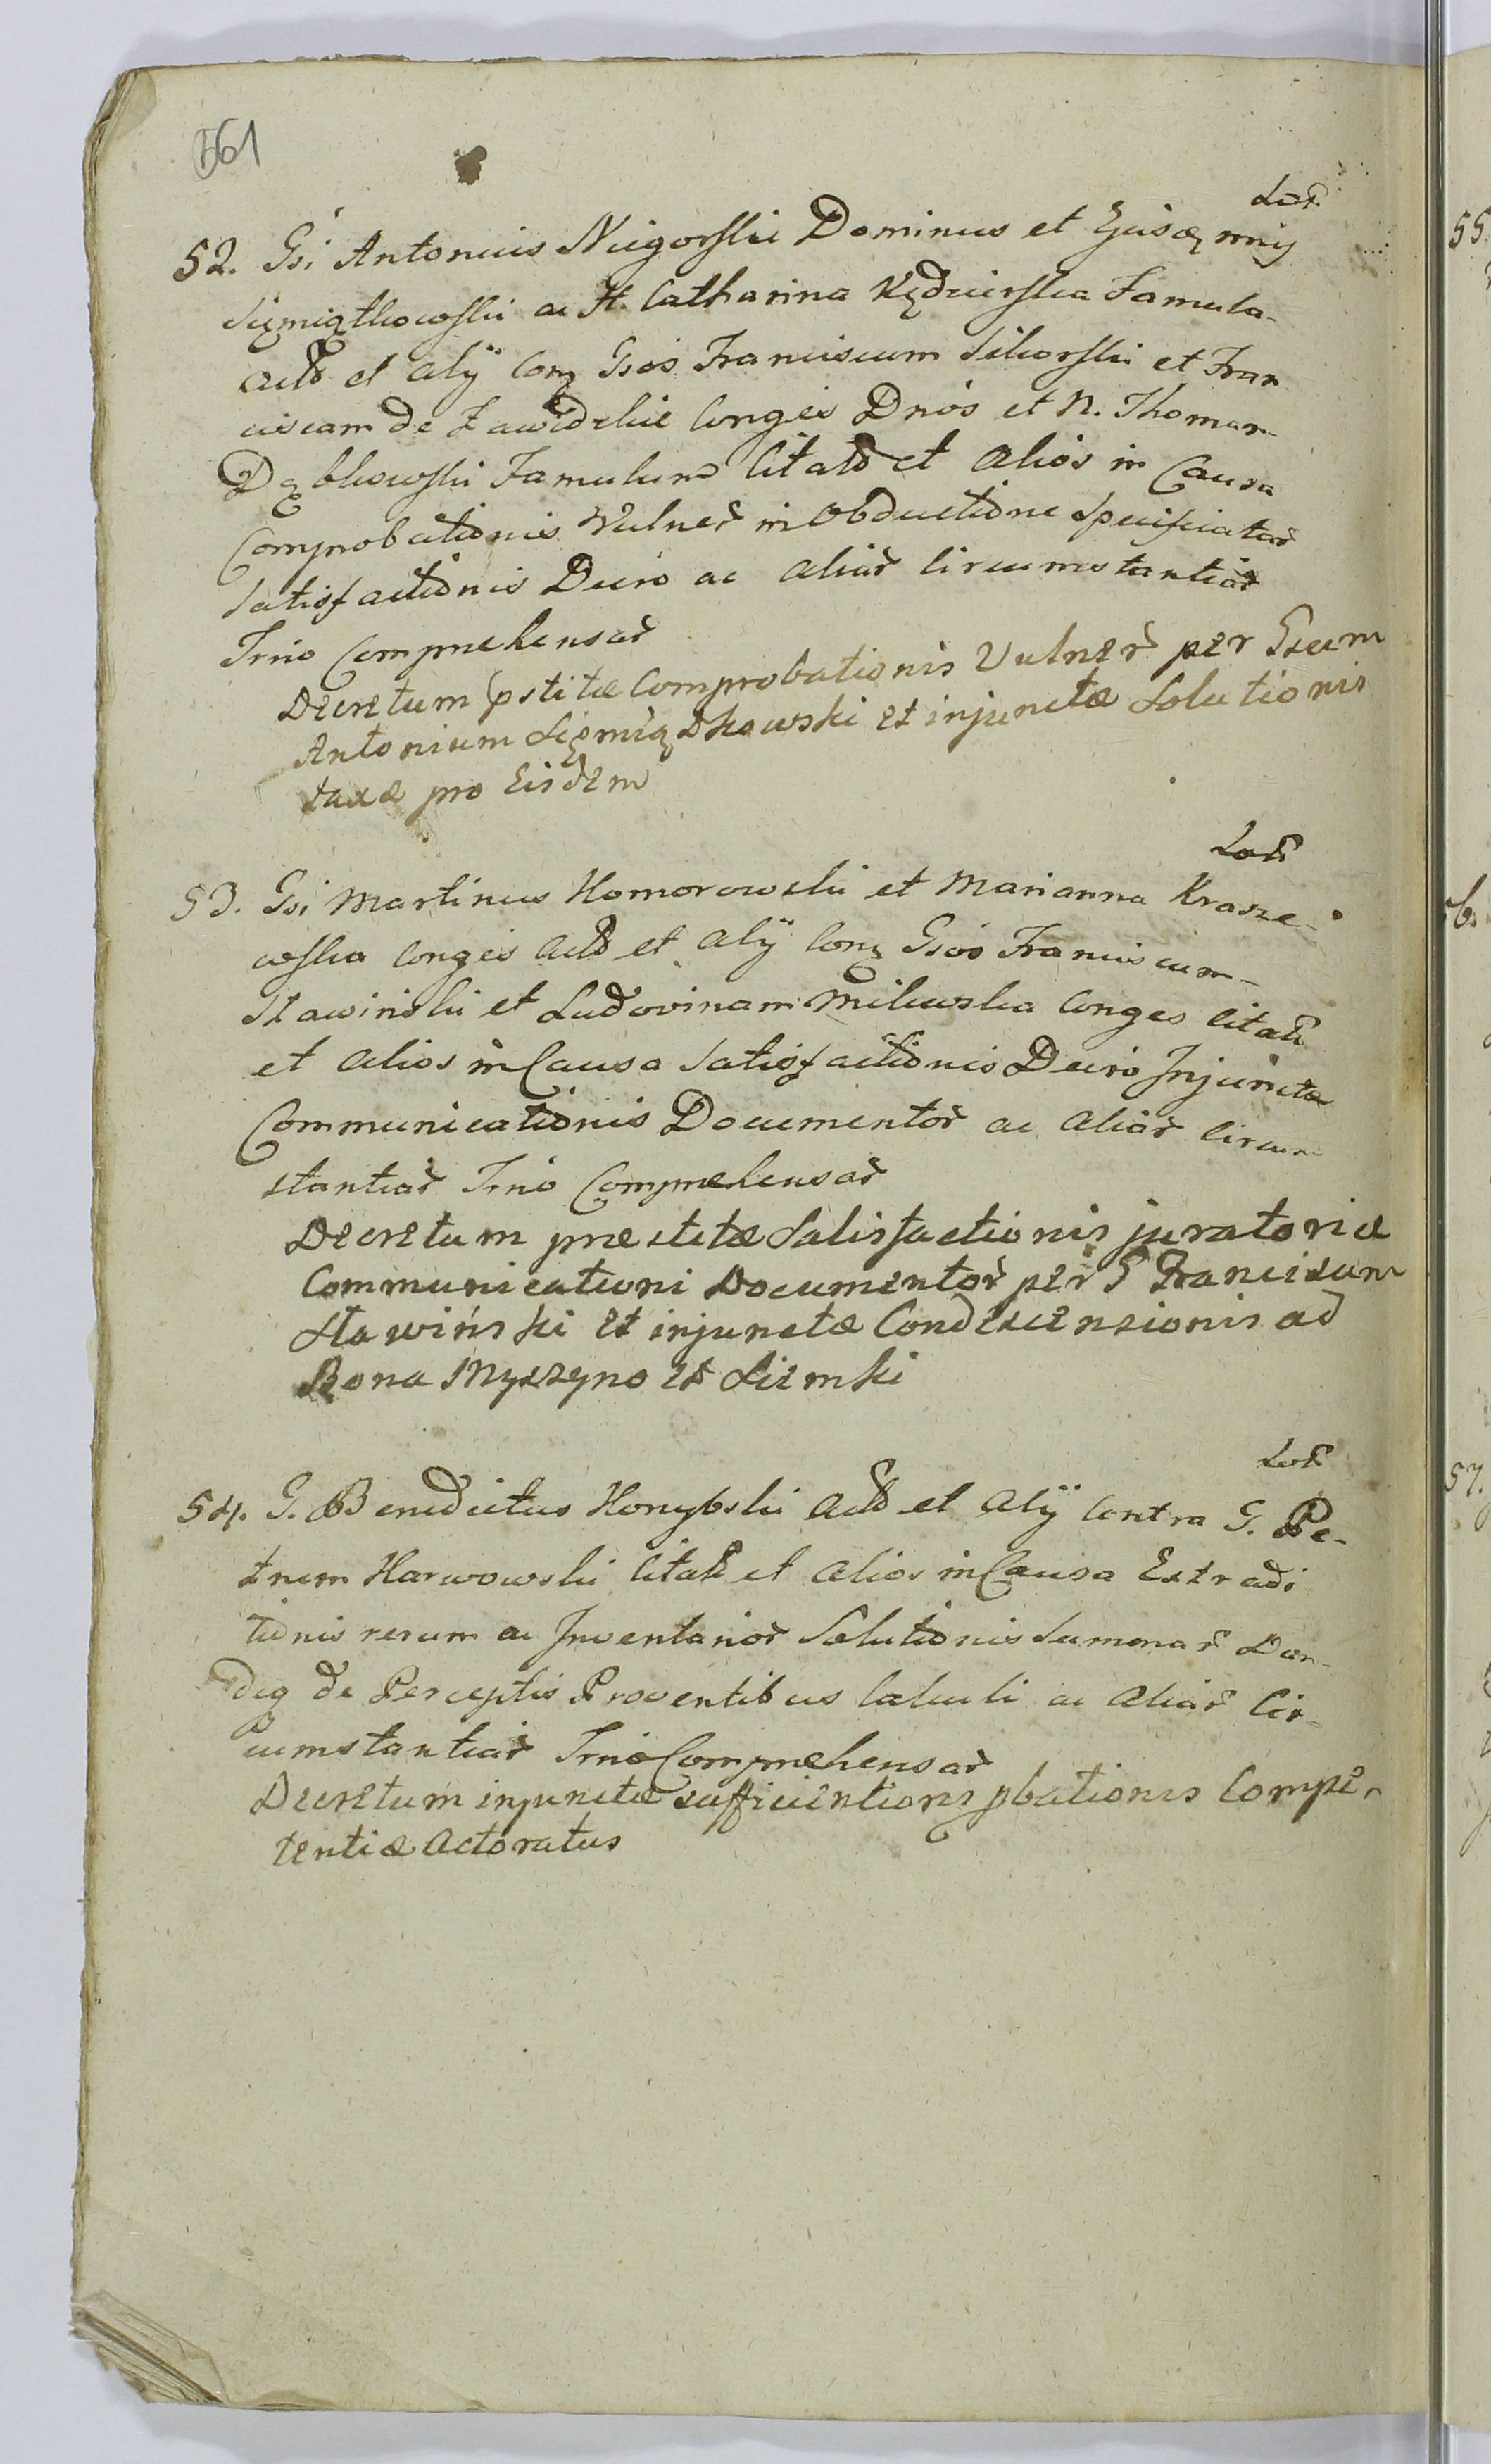 561
Lat
52. Gsi Antonius Niegorski Dominus et Ejusq mij
Siemiątkowski ac H. Catharina Kędzierska Famula
Actô et Alÿ Conq Gsos Franciscum Sikorski et Fran
ciscam de Zawidzkie Conges Dnos et N. Thomam
Dębkowski Famulum Citatô et Alios in Causa
Comprobationis Vulner in Obductione Specificator
Satisfactionis Decro ac Aliar Circumstantiar
Trno Comprehensar
Decretum pstitæ Comprobationis Vulner per Gsum
Antonium Siemiądkowski et injunctæ Solutionis
taxæ pro Eisdem
53. Gsi Martinus Komorowski et Marianna Krasze-
wska Conges Actô et Alÿ Conq Gsos Franciscum
Stawinski et Ludovinam Milewska Conges Citatô
et Alios in Causa Satisfactionis Decro Injuncta
Communicationis Documentor ac Aliar Circum
stantiar Trno Comprehensar
Decretum præstitæ Satisfactionis juratoriæ
Communicationi Documentor per G Franciscum
Stawiński et injunctæ Condescensionis ad
Bona Myszyno et Siemki
54. G. Benedictus Konybski Actô et Alÿ Contra G. Pe-
trum Karwowski Citatô et Alios in Causa Extradi
tionis rerum ac Inventarior Solutionis Summar Dan-
diq de Perceptis Proventibus Calculi ac Aliar Cir-
cumstantiar Trno Comprehensar
Decretum injunctæ sufficientioris pbationis Compe-
tentiæ Actoratus
55.
57.